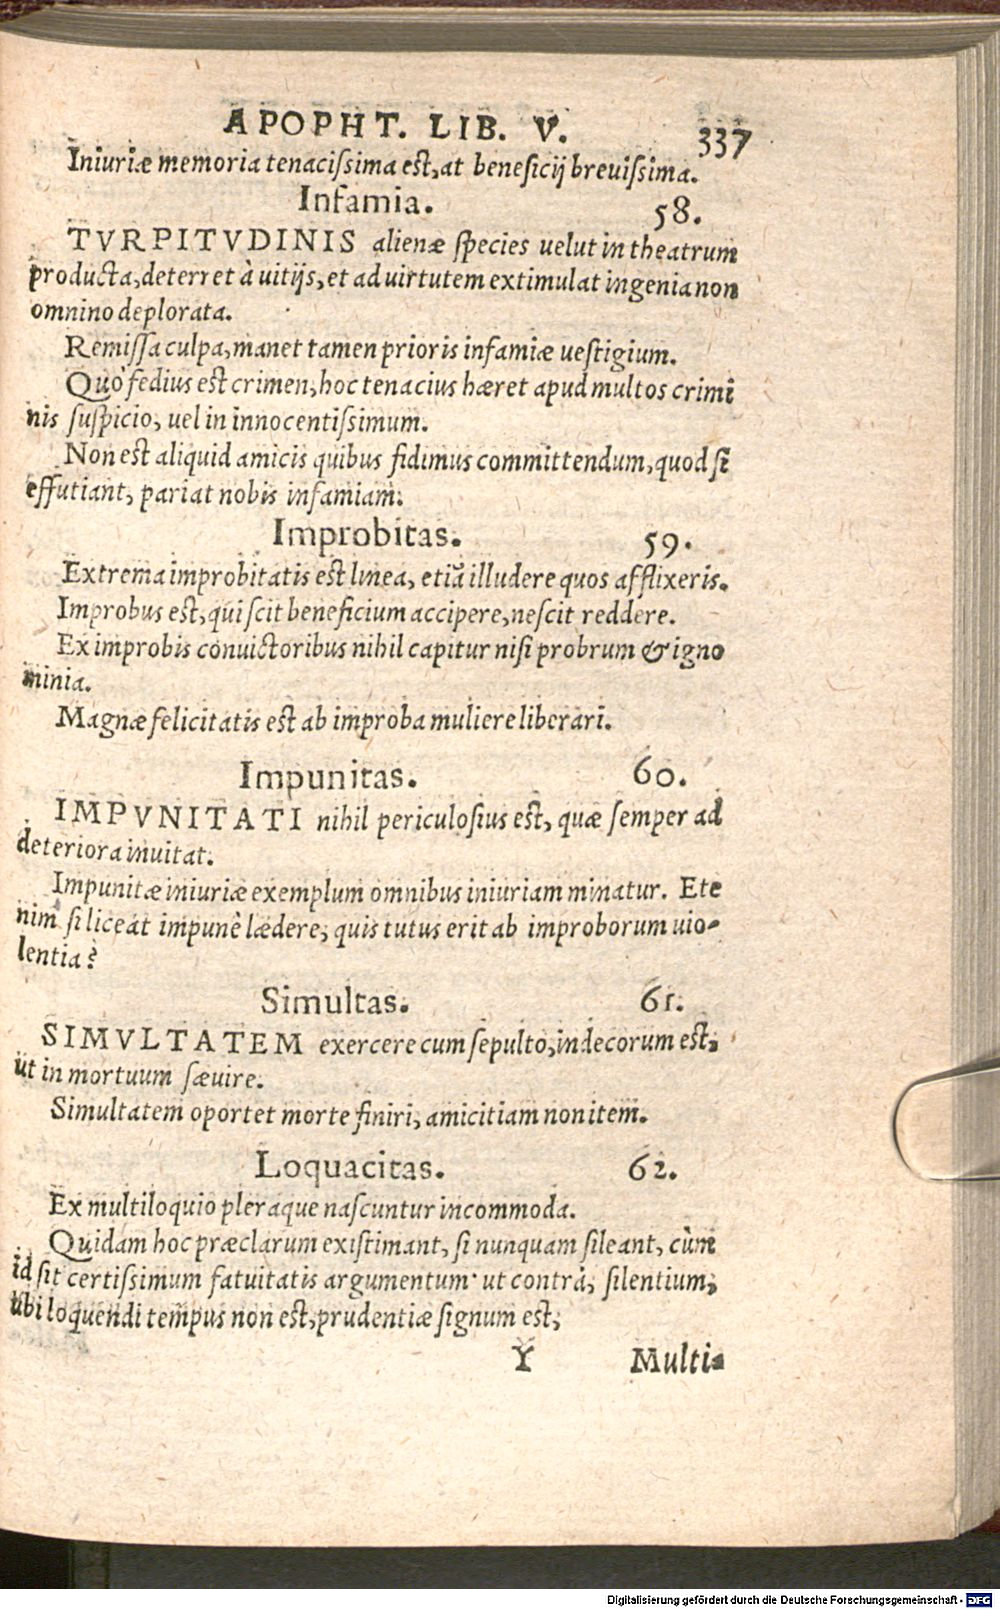 APOPHT. LIB. V. 337
Iniuriæ memoria tenacißima est, at beneficij breuißima.
Infamia. 58.
TVRPITVDINIS alienæ ſpecies uelut in theatrum
producta, deterret à uitijs, et ad uirtutem extimulat ingenia non
omnino deplorata.
Remiſſa culpa, manet tamen prioris infamiæ ueſtigium.
Quò fedius est crimen, hoc tenacius hæret apud multos crimi
nis ſuſpicio, uel in innocentißimum.
Non est aliquid amicis quibus fidimus committendum, quod ſi
effutiant, pariat nobis infamiam.
Improbitas. 59.
Extrema improbitatis est linea, etiã illudere quos afflixeris.
Improbus est, qui ſcit beneficium accipere, neſcit reddere.
Ex improbis conuictoribus nihil capitur niſi probrum & igno
minia.
Magnæ felicitatis est ab improba muliere liberari.
Impunitas. 60.
IMPVNITATI nihil periculoſius est, quæ ſemper ad
deteriora inuitat.
Impunitæ iniuriæ exemplum omnibus iniuriam minatur. Ete
nim ſi liceat impunè lædere, quis tutus erit ab improborum uio-
lentia?
Simultas. 61.
SIMVLTATEM exercere cum ſepulto, indecorum est,
ut in mortuum ſæuire.
Simultatem oportet morte finiri, amicitiam non item.
Loquacitas. 62.
Ex multiloquio pleraque naſcuntur incommoda.
Quidam hoc præclarum exiſtimant, ſi nunquam ſileant, cùm
id ſit certißimum fatuitatis argumentum· ut contrà, ſilentium,
ubi loquendi tempus non est, prudentiæ ſignum est,
Y Multi-
Digitalisierung gefördert durch die Deutsche Forschungsgemeinschaft - DFG